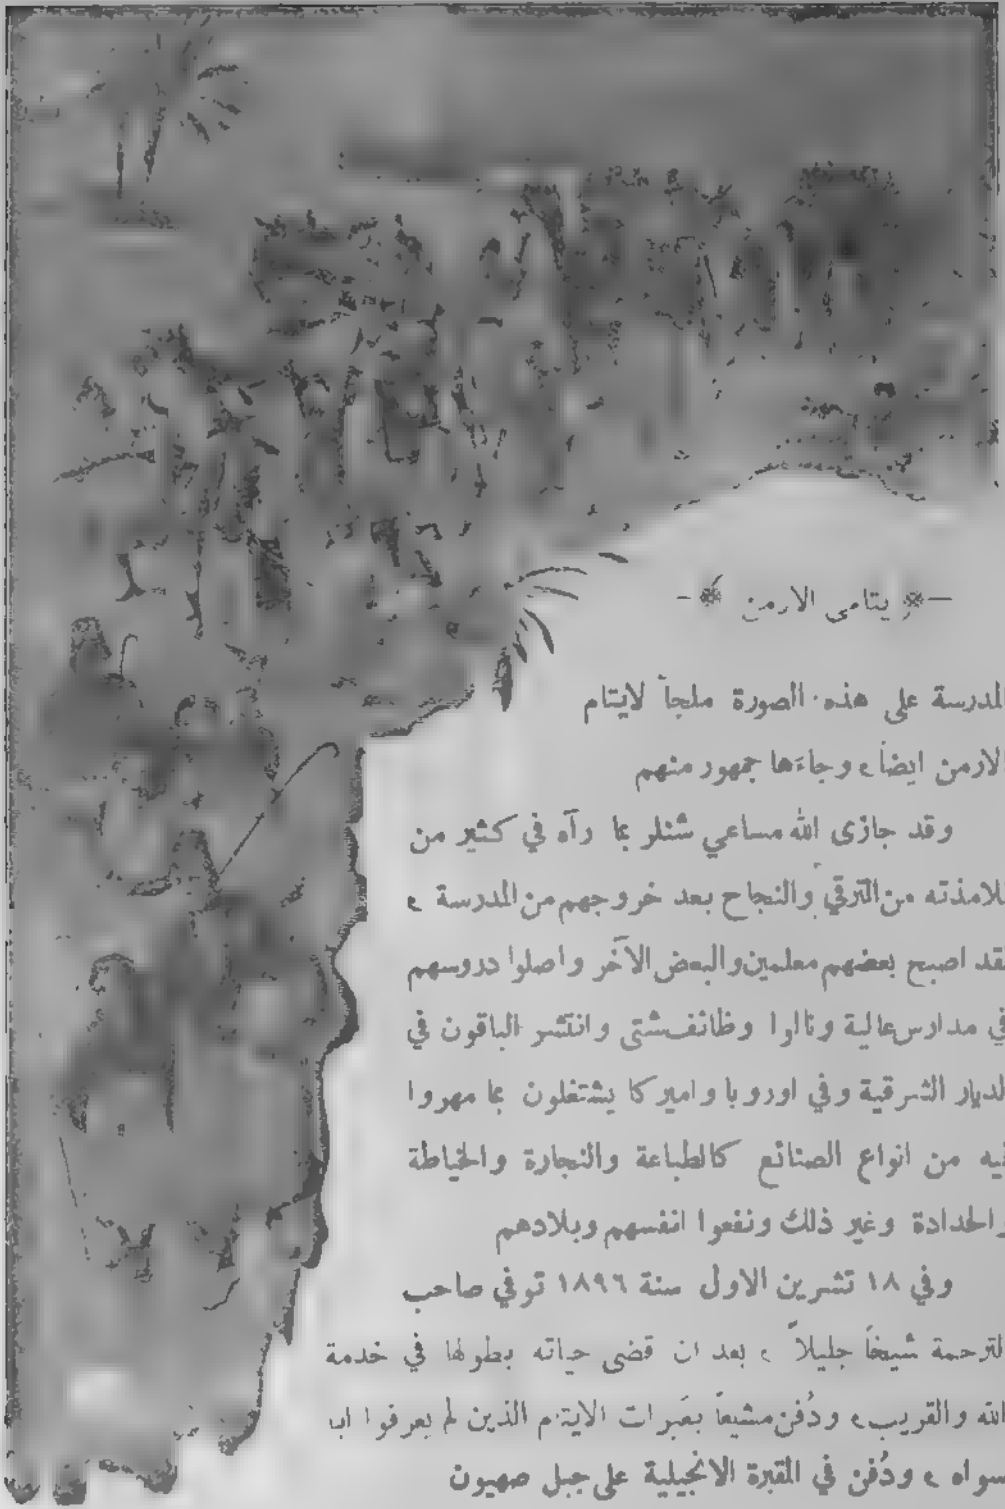 يتامى الارمن
المدرسة على هذه الصورة ملجأ لايتام
الارمن ايضاً، وجاءَها جمهور منهم
وقد جازى الله مساعي شنلر بما رآه في كثير من
تلامذته من الترقي والنجاح بعد خروجهم من المدرسة ،
فقد اصبح بعضهم معلمين والبعض الآخر واصلوا دروسهم
في مدارس عالية ونالوا وظائف شتى وانتشر الباقون في
الديار الشرقية وفي اوروبا واميركا يشتغلون بما مهروا
فيه من انواع الصنائع كالطباعة والنجارة والخياطة
والحدادة وغير ذلك ونفعوا انفسهم وبلادهم
وفي ١٨ تشرين الاول سنة ١٨٩٦ توفي صاحب
الترجمة شيخاً جليلاً ، بعد ان قضى حياته بطولها في خدمة
الله والقريب، ودُفن مشيعاً بعَبرات الايتام الذين لم يعرفوا ابا
سواه ، ودُفن في المقبرة الانجيلية على جبل صهيون